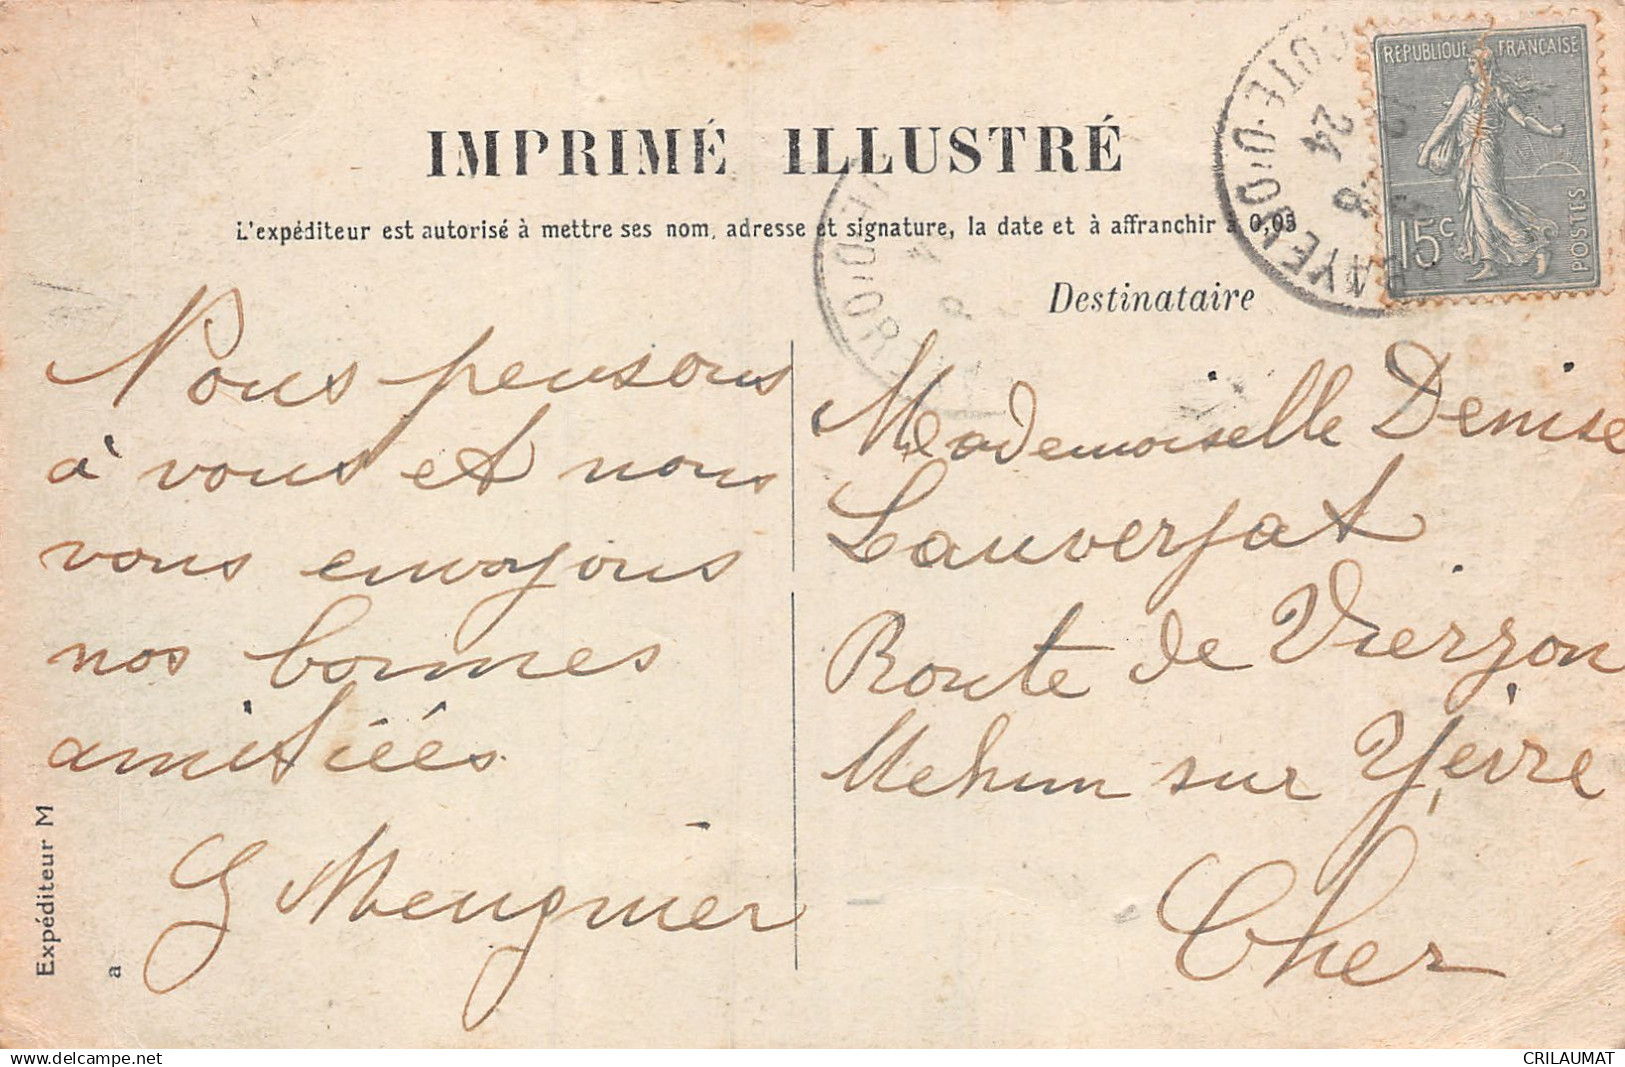 IMPRIMÉ ILLUSTRÉ
L'expéditeur est autorisé à mettre ses nom, adresse et signature, la date et à affranchir à 0,05
Destinataire
REPUBLIQUE FRANÇAISE
15c
POSTES
COTE-D'OR
24
8
Nous pensons
à vous et nous
vous envoyons
nos bonnes
amitiéés
G Meugnier
Mademoiselle Denise
Lauverjat
Route de Vierzon
Mehun sur Yèvre
Cher
Expéditeur M
a
www.delcampe.net
CRILAUMAT